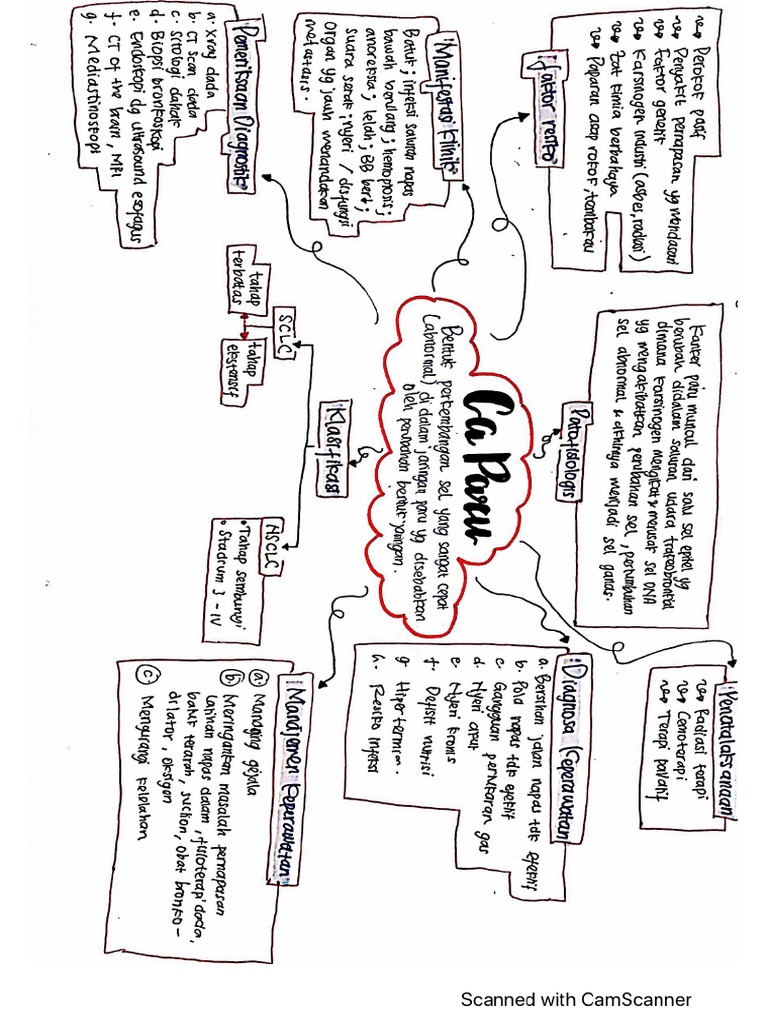 Ca Paru
Bentuk perkembangan sel yang sangat cepat
(abnormal) di dalam jaringan paru yg disebabkan
oleh perubahan bentuk jaringan.
Faktor resiko
Perokok pasif
Penyakit pernapasan yg mendasari
Faktor genetik
Karsinogen industri (asbes, radiasi)
Zat kimia berbahaya
Paparan asap rokok, tembakau
Manifestasi klinik
Batuk ; infeksi saluran napas
bawah berulang ; hemoptosis ;
anoreksia ; lelah ; BB berk ;
suara serak ; nyeri / disfungsi
organ yg jauh menandakan
metastasis.
Pemeriksaan Diagnostik
a. Xray dada
b. CT Scan dada
c. Sitologi dahak
d. Biopsi bronkoskopi
e. Endoskopi dg ultrasound esofagus
f. CT of the brain, MRI
g. Mediastinoskopi
Patofisiologis
Kanker paru muncul dari satu sel epitel yg
berubah didalam saluran udara trakeobronkial
dimana karsinogen mengikat & merusak sel DNA
yg mengakibatkan perubahan sel, pertumbuhan
sel abnormal & akhirnya menjadi sel ganas.
Klasifikasi
SCLC
tahap
terbatas
tahap
ekstensif
NSCLC
• Tahap sembunyi
• Stadium 3 - IV
Penatalaksanaan
Radiasi terapi
Cemoterapi
Terapi paliatif
Diagnosa Keperawatan
a. Bersihan jalan napas tdk efektif
b. Pola napas tdk efektif
c. Gangguan pertukaran gas
d. Nyeri akut
e. Nyeri kronis
f. Defisit nutrisi
g. Hipertermia.
h. Resiko infeksi
Manajemen Keperawatan
a Manajing gejala
b Meringankan masalah pernapasan
latihan napas dalam, fisioterapi dada,
batuk terarah, suction, obat bronko-
dilator, oksigen
c Mengurangi kelelahan
Scanned with CamScanner